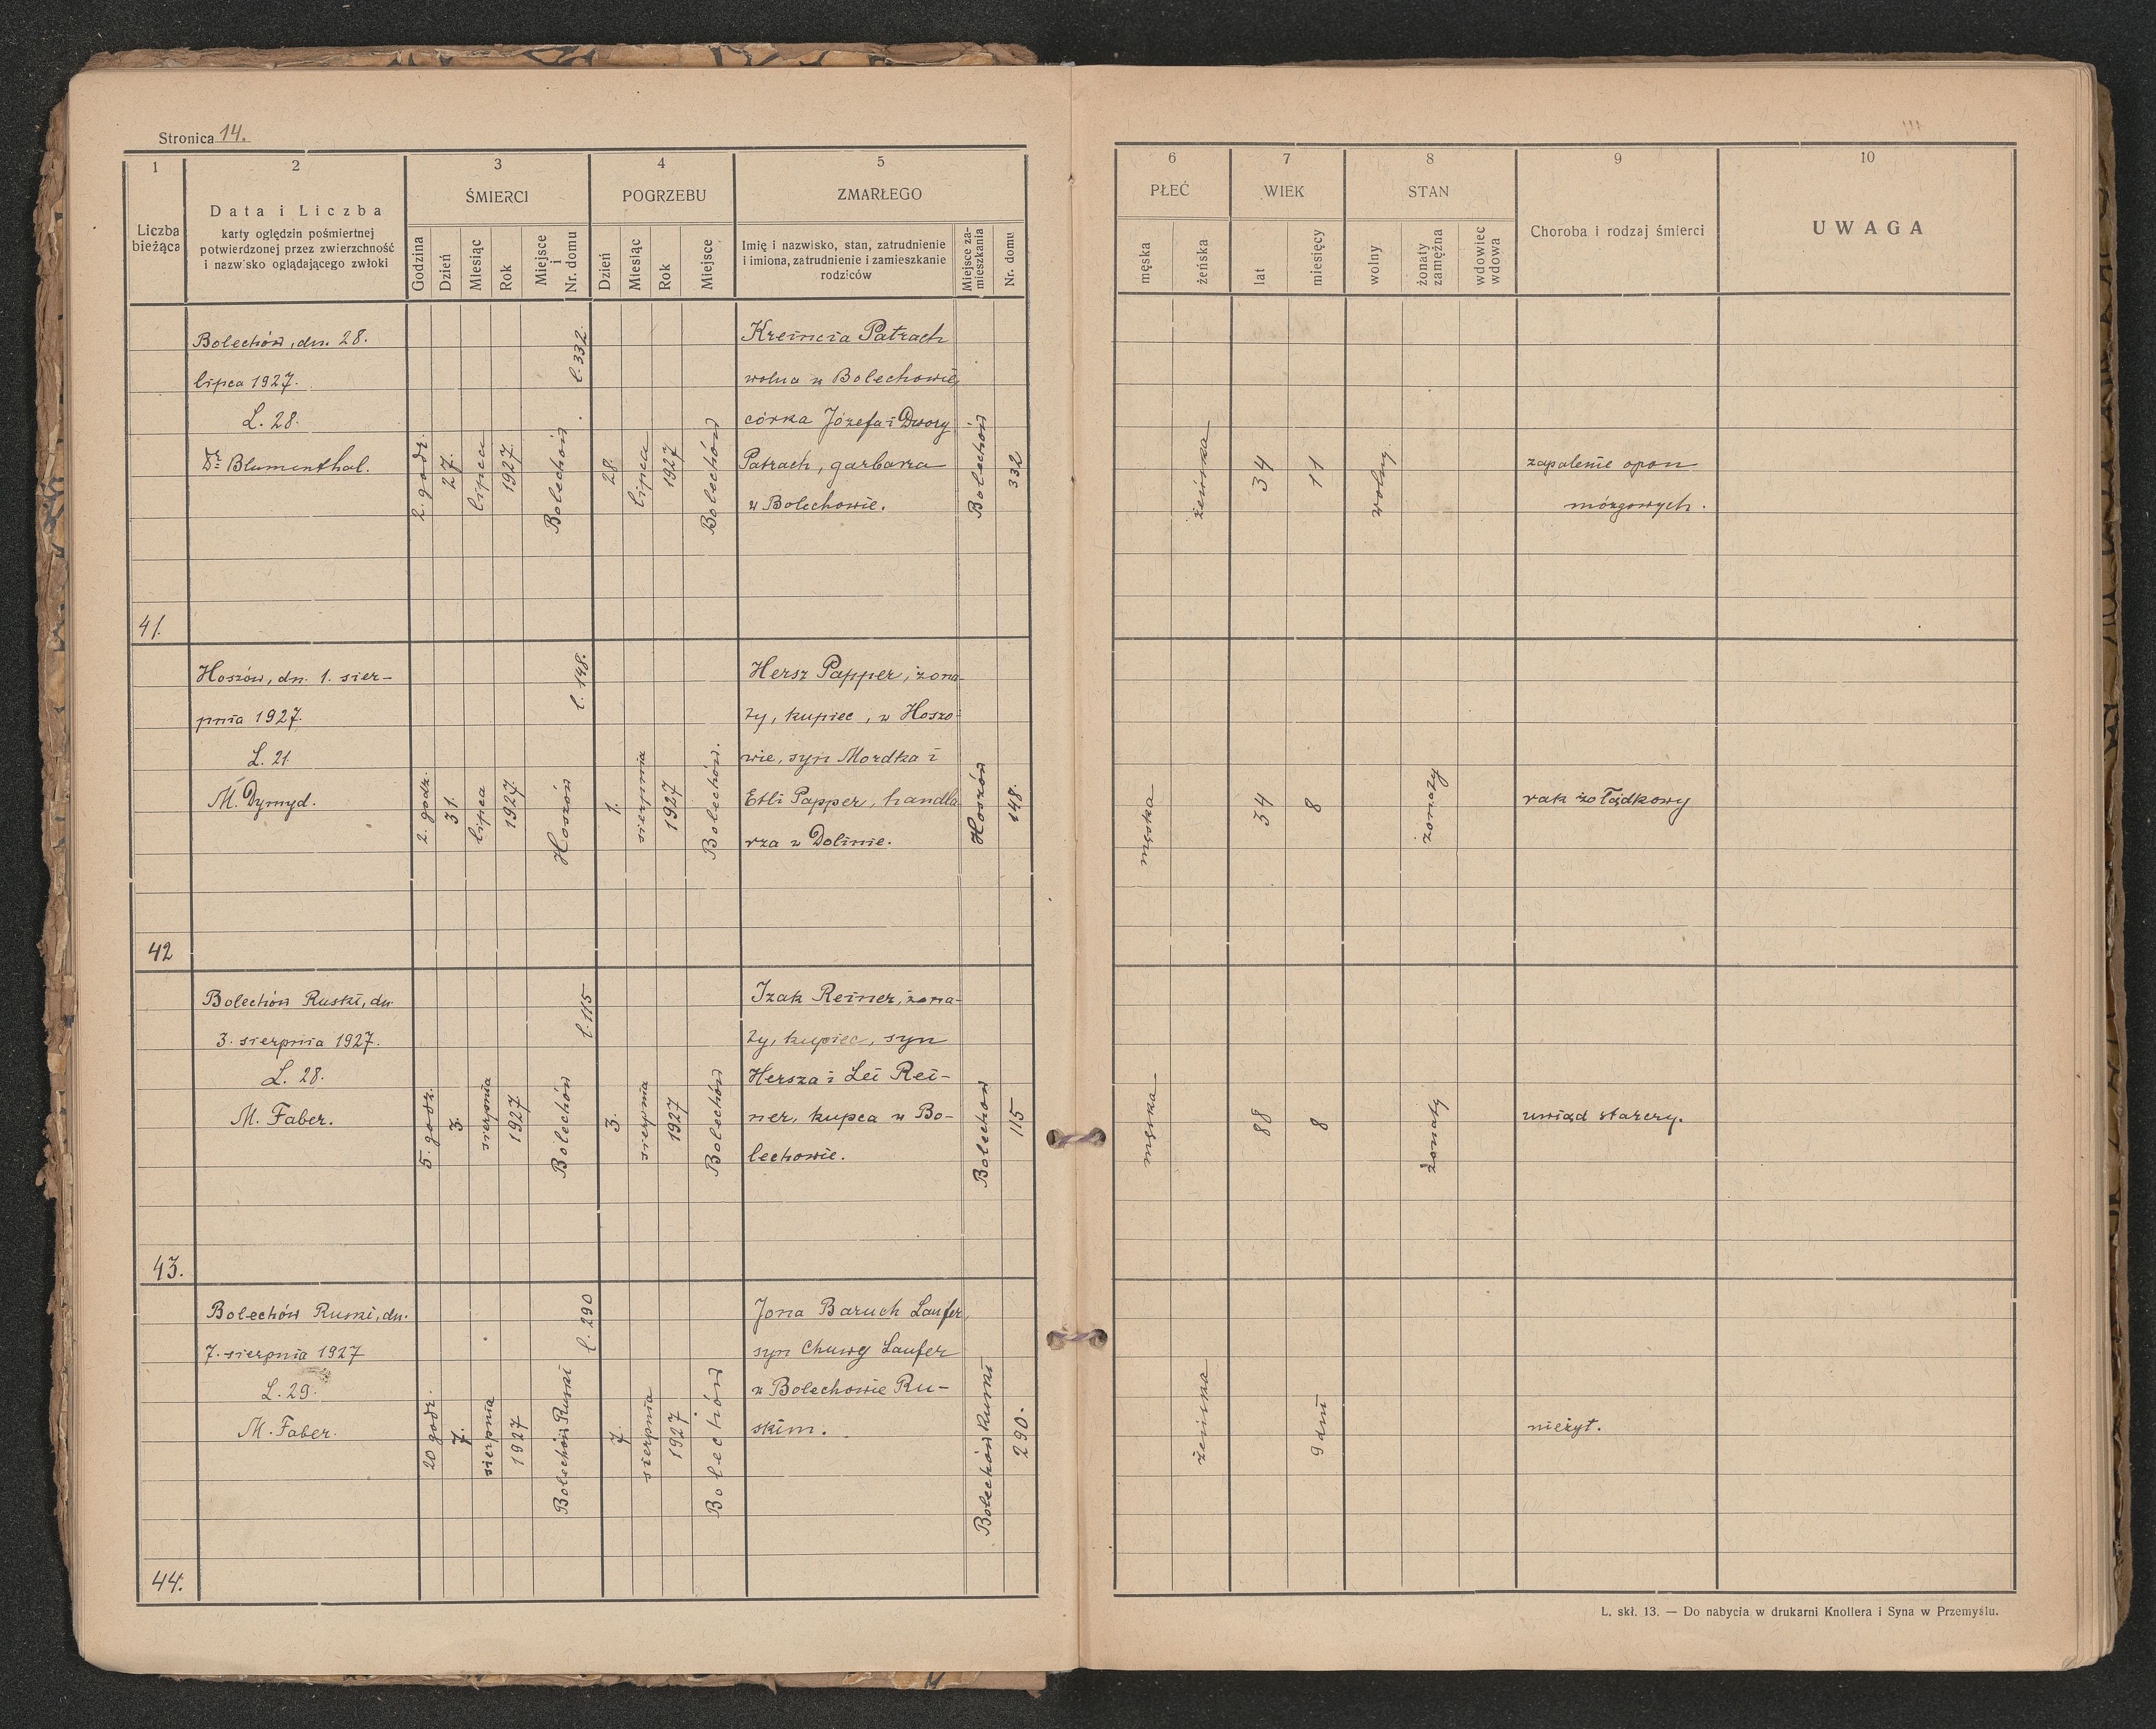 Stronica 14.
1
2
3
4
5
Liczba
bieżąca
Data i Liczba
karty oględzin pośmiertnej
potwierdzonej przez zwierzchność
i nazwisko oglądającego zwłoki
ŚMIERCI
Godzina
Dzień
Miesiąc
Rok
Miejsce
i
Nr. domu
POGRZEBU
Dzień
Miesiąc
Rok
Miejsce
ZMARŁEGO
Imię i nazwisko, stan, zatrudnienie
i imiona, zatrudnienie i zamieszkanie
rodziców
Miejsce za-
mieszkania
Nr. domu
6
7
8
9
10
PŁEĆ
męska
żeńska
WIEK
lat
miesięcy
STAN
wolny
żonaty
zamężna
wdowiec
wdowa
Choroba i rodzaj śmierci
UWAGA
41.
Bolechów, dn. 28.
lipca 1927.
L. 28.
Dr Blumenthal.
2. godz.
27.
lipca
1927
Bolechów
l. 332.
28.
lipca
1927
Bolechów
Kreincia Patrach
wolna w Bolechowie,
córka Józefa i Dwory
Patrach, garbarza
w Bolechowie.
Bolechów
332
żeńska
34
11
wolny
zapalenie opon
mózgowych.
42
Hoszów, dn. 1. sier-
pnia 1927.
L. 21.
M. Dymyd.
2. godz.
31.
lipca
1927
Hoszów
l. 148.
1.
sierpnia
1927
Bolechów.
Hersz Papper, żona-
ty, kupiec, w Hoszo-
wie, syn Mordka i
Etli Papper, handla-
rza w Dolinie.
Hoszów
148.
męska
34
8
żonaty
rak żołądkowy
43.
Bolechów Ruski, dn.
3. sierpnia 1927.
L. 28.
M. Faber.
5. godz.
3.
sierpnia
1927
Bolechów
l. 115
3.
sierpnia
1927
Bolechów
Izak Reiner, żona-
ty, kupiec, syn
Hersza i Lei Rei-
ner, kupca w Bo-
lechowie.
Bolechów
115
męska
88
8
żonaty
uwiąd starczy.
44.
Bolechów Ruski, dn.
7. sierpnia 1927
L. 29.
M. Faber.
20 godz.
7.
sierpnia
1927
Bolechów Ruski
l. 290
7.
sierpnia
1927
Bolechów
Jona Baruch Laufer,
syn Chuwy Laufer
w Bolechowie Ru-
skim.
Bolechów Ruski
290.
żeńska
9 dni
nieżyt.
L. skł. 13. — Do nabycia w drukarni Knollera i Syna w Przemyślu.